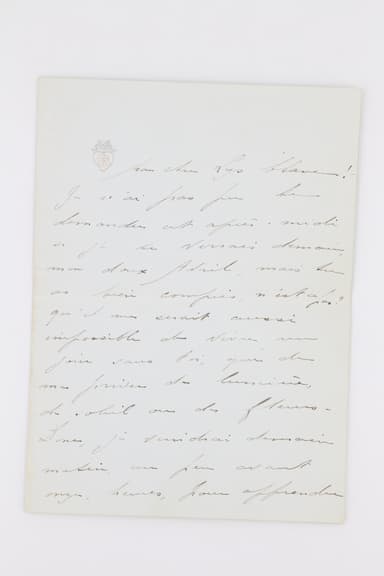 mon cher Lys blanc!
Je n'ai pas pu te
demander cet après-midi
si je te verrais demain,
mon doux Avril, mais tu
as bien compris, n'est-ce pas?
qu'il me serait aussi
impossible de vivre un
jour sans toi, que de
me priver de lumière,
de soleil ou de fleurs.-
Donc, je viendrai demain
matin un peu avant
onze heures, pour apprendre